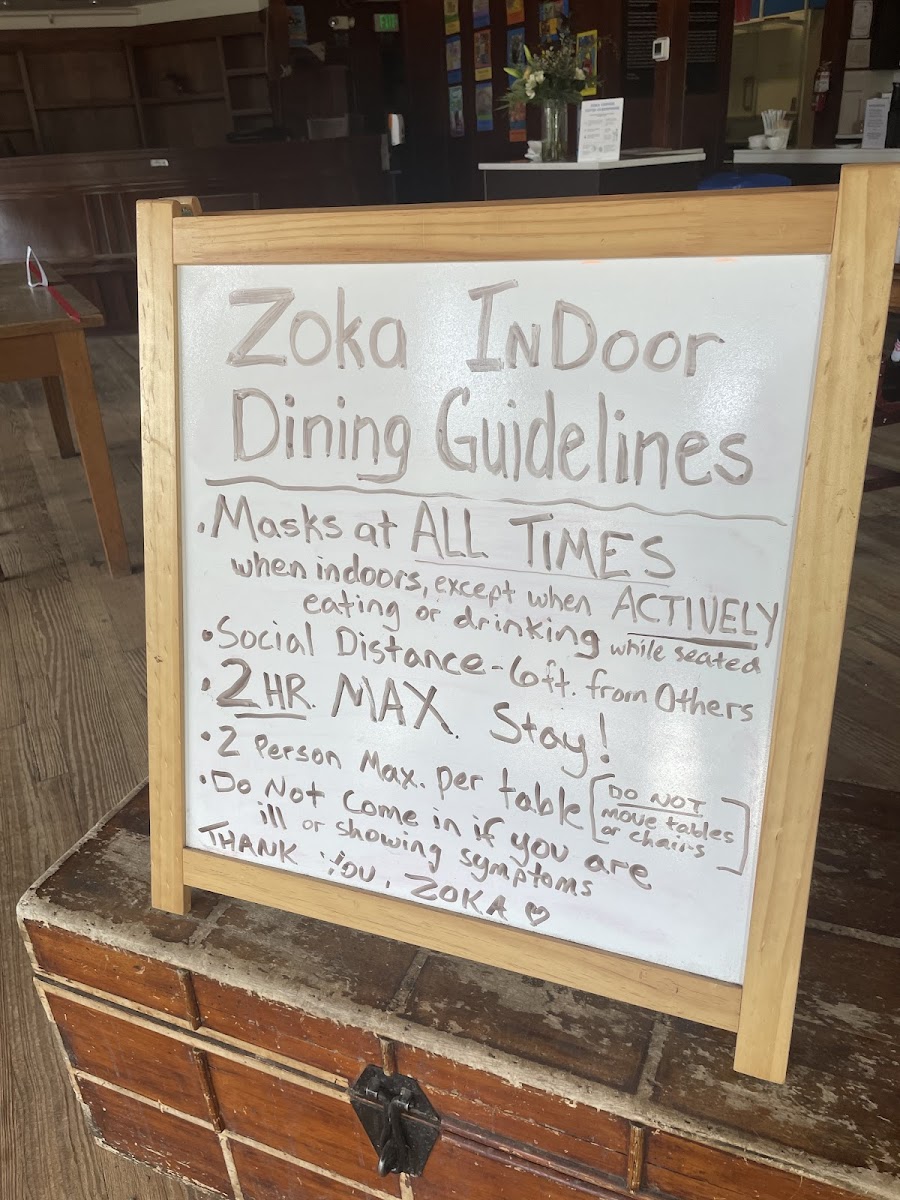 Zoka InDoor
Dining Guidelines
• Masks at ALL TIMES
when indoors, except when ACTIVELY
eating or drinking while seated
• Social Distance - 6ft. from Others
• 2 HR. MAX. Stay!
• 2 Person Max. per table [DO NOT
move tables
or chairs]
• Do Not Come in if you are
ill or showing symptoms
THANK YOU, ZOKA ♡